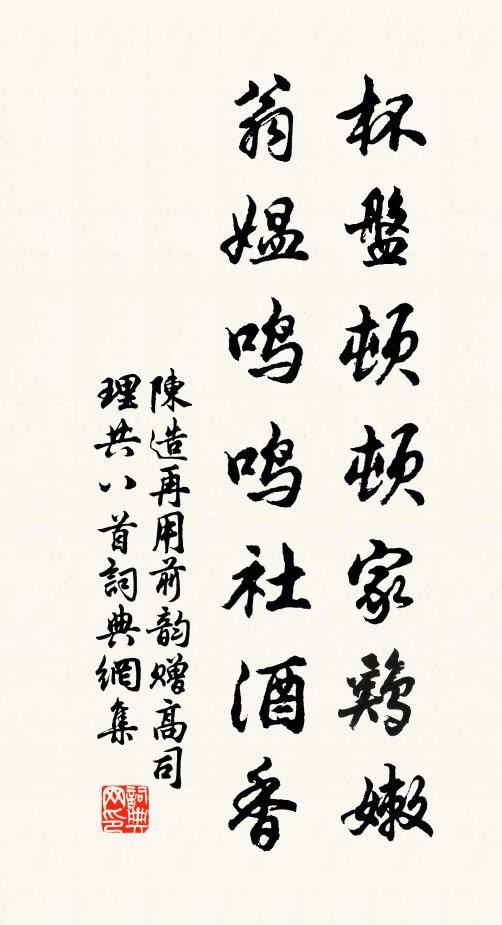 杯盤頓頓家鷄嫩
翁媼嗚嗚社酒香
陳造再用前韵贈高司
理共八首詞典網集
詞典网印